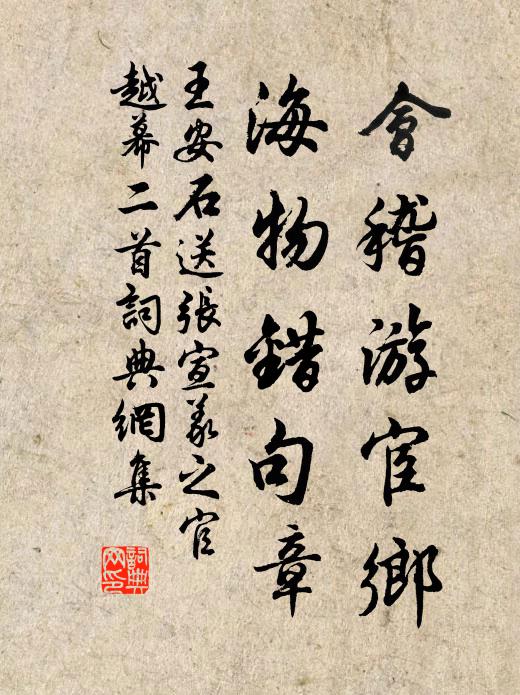 會稽游宦鄉
海物錯句章
王安石送張宣義之官
越幕二首詞典網集
詞典
网印